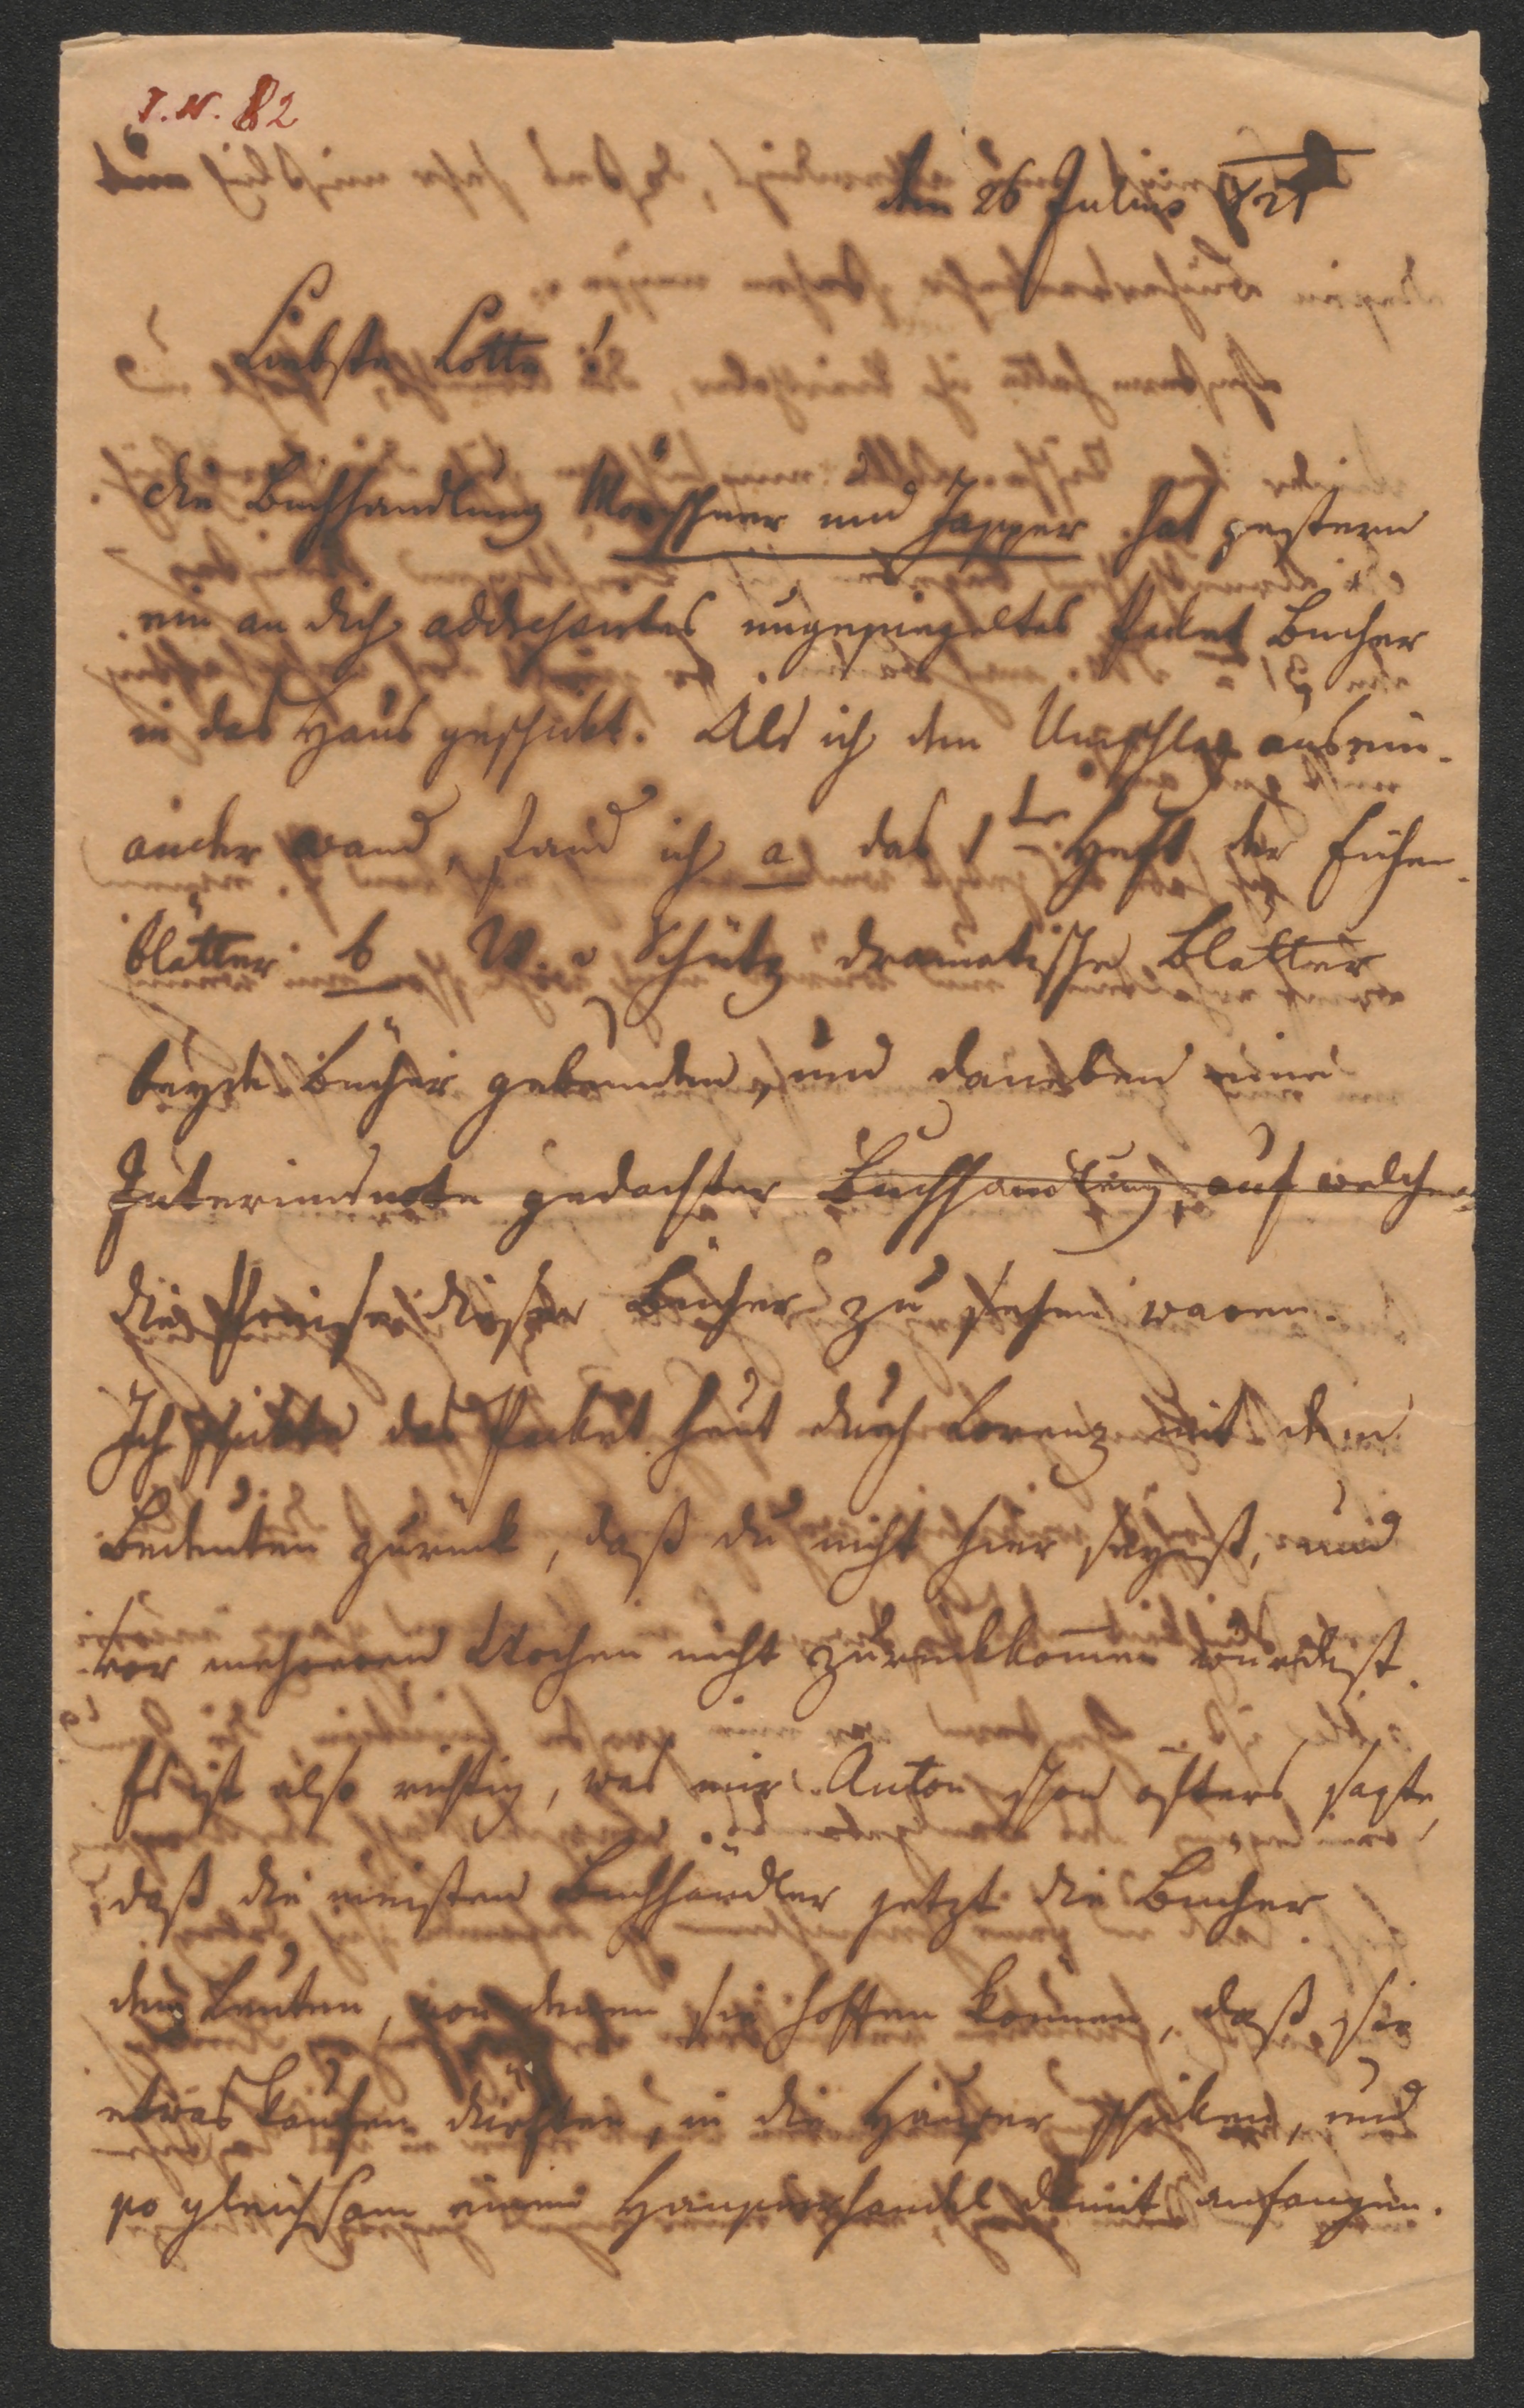 I. N. 82
den 26 Julius 821
Liebste Lotte!
die Buchhandlung Mörschner und Jasper hat gestern
ein an dich addressirtes ungesiegeltes Paket Bücher
in das Haus geschikt. Als ich den Umschlag ausein-
ander wand, fand ich a das 1te Heft der Eichen
blätter b W. v Schütz dramatische Blätter
beyde Bücher gebunden, und daneben eine
Interimsnote gedachter Buchhandlung, auf welcher
die Preise dieser Bücher zu sehen waren.
Ich schikte das Paket heut durch Lorenz mit dem
Bedeuten zurück, daß du nicht hier seyest, und
vor mehreren Wochen nicht zurückkommen würdest.
Es ist also richtig, was mir Anton schon öfters sagte,
daß die meisten Buchhändler jetzt die Bücher
den Leuten, von denen sie hoffen können, daß sie
etwas kaufen dürften, in die Häuser schiken, und
so gleichsam einen Hausierhandel damit anfangen.